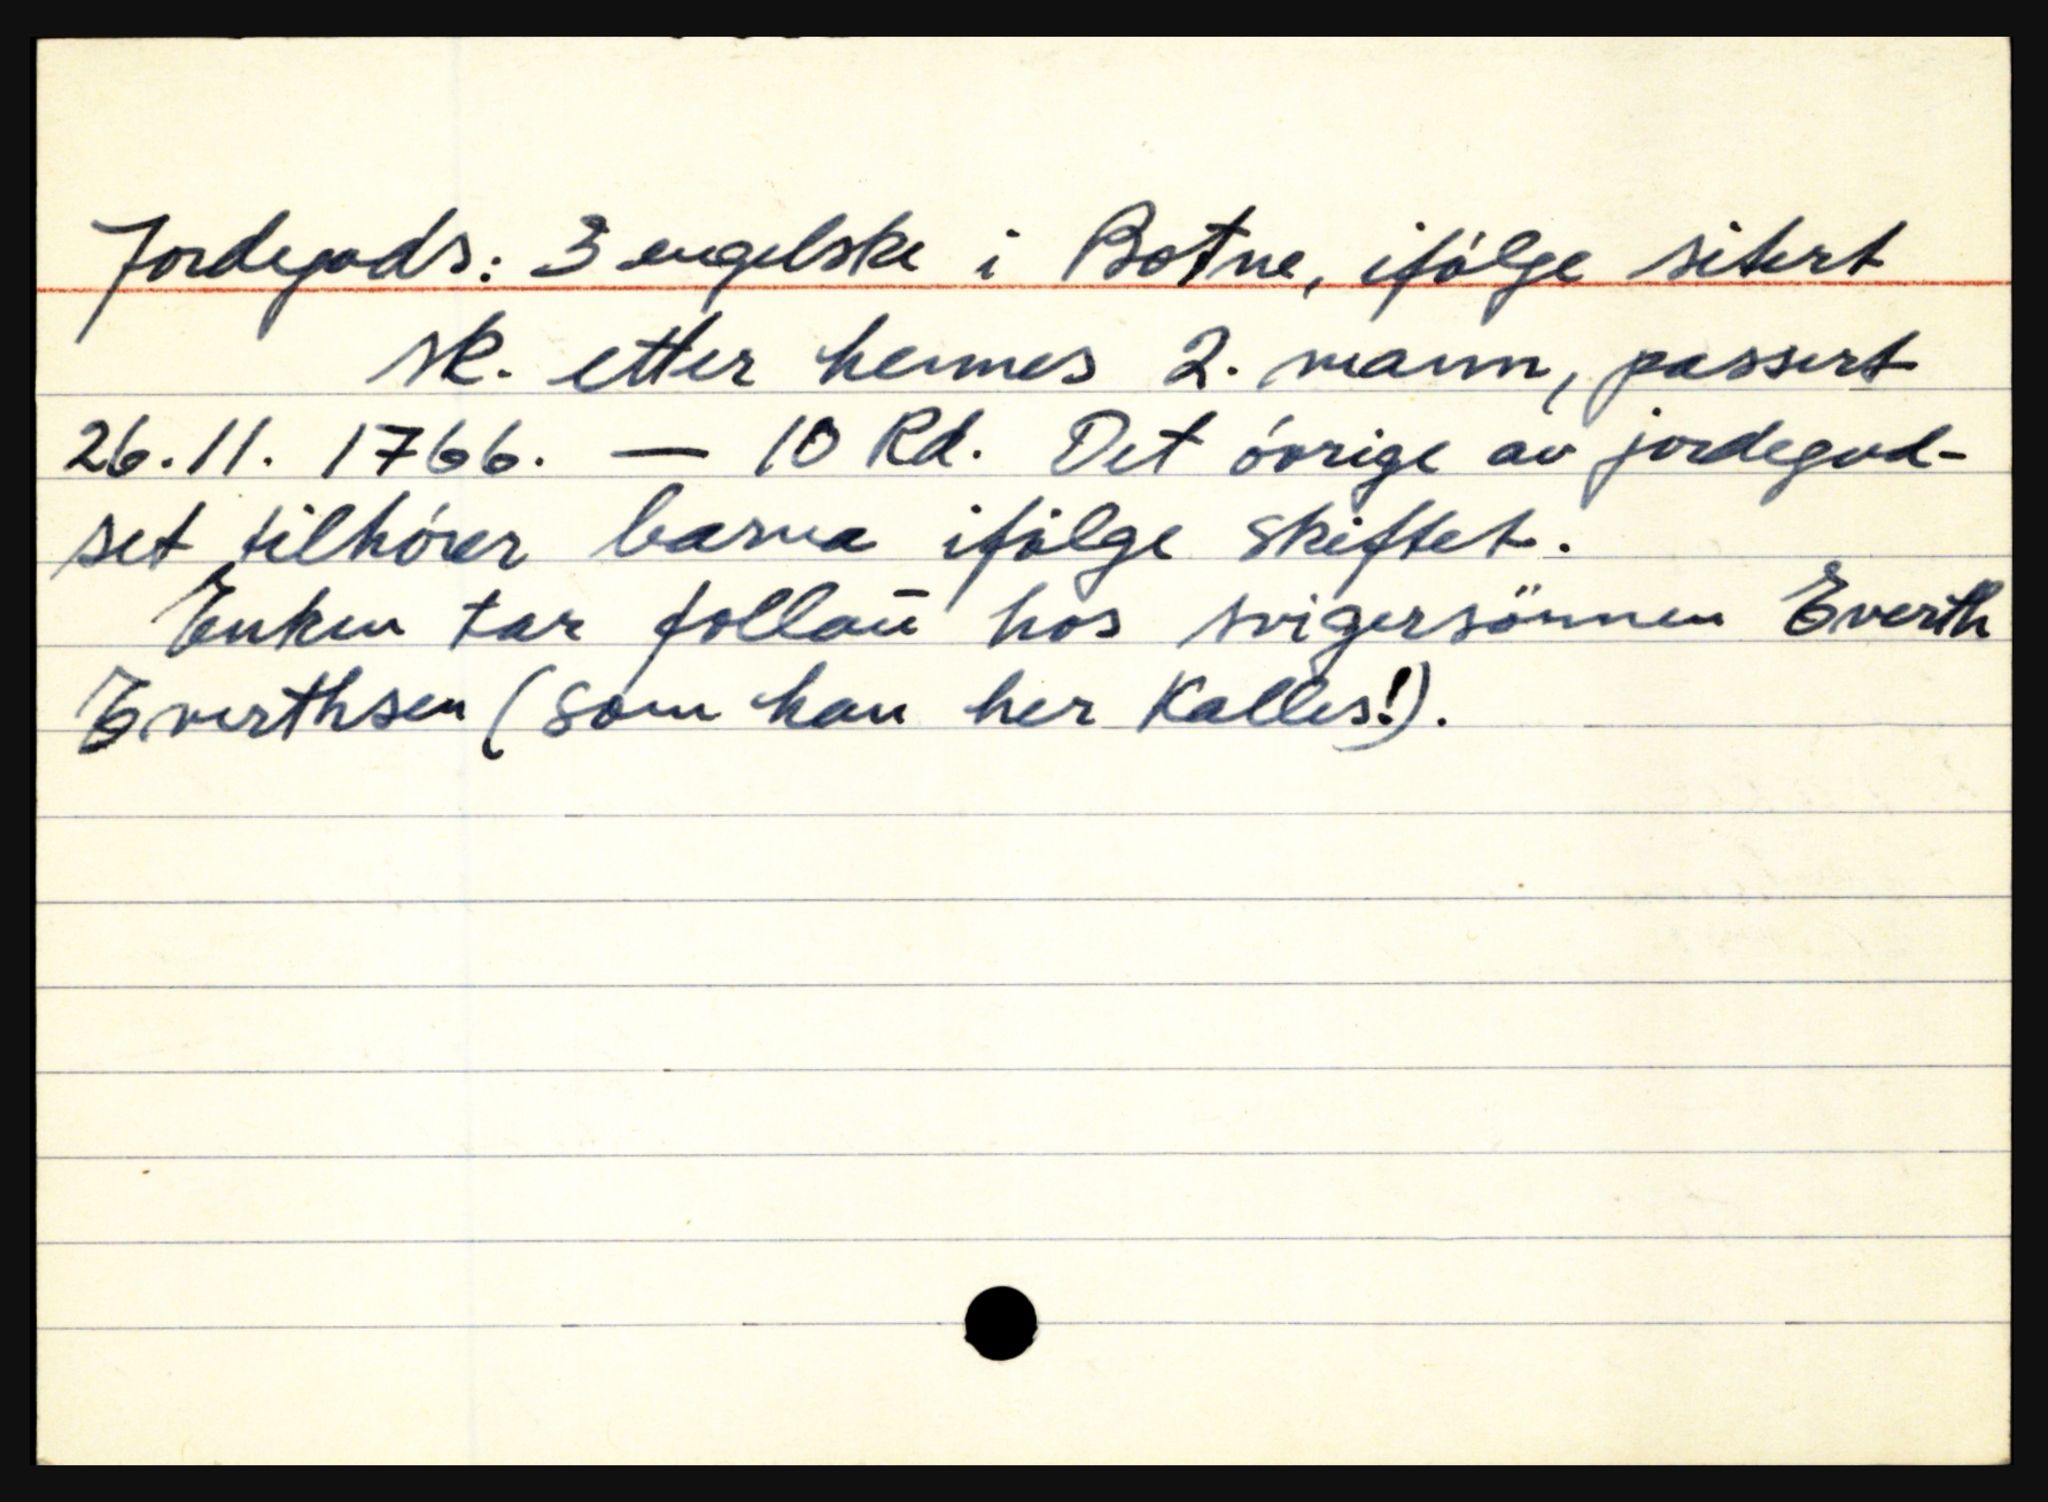 Jordegods: 3 engelske i Botne, ifølge sikert
sk. etter hennes 2. mann, passert
26.11. 1766. — 10 Rd. Det övrige av jordegod-
set tilhörer barna ifölge skiftet.
Enken tar follaū hos svigersönnen Everth
Everthsen (som han her kalles!).